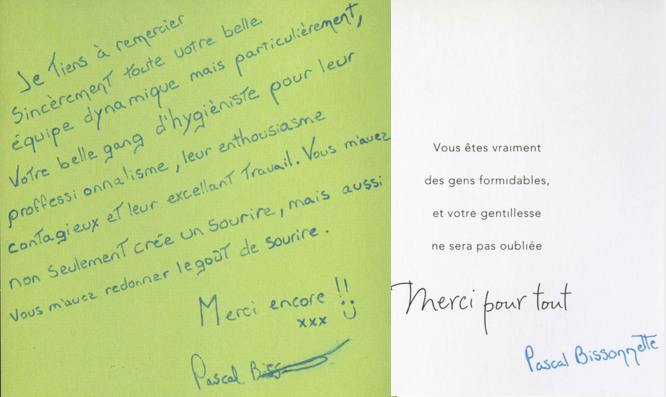 Je Tiens à remercier
Sincèrement toute votre belle
équipe dynamique mais particulièrement,
Votre belle gang d'hygièniste pour leur
proffessionnalisme, leur enthousiasme
contagieux et leur excellant Travail. Vous m'avez
non seulement crée un sourire, mais aussi
vous m'avez redonner le goût de sourire.
Merci encore !!
xxx
Pascal
Vous êtes vraiment
des gens formidables,
et votre gentillesse
ne sera pas oubliée
Merci pour tout
Pascal Bissonnette